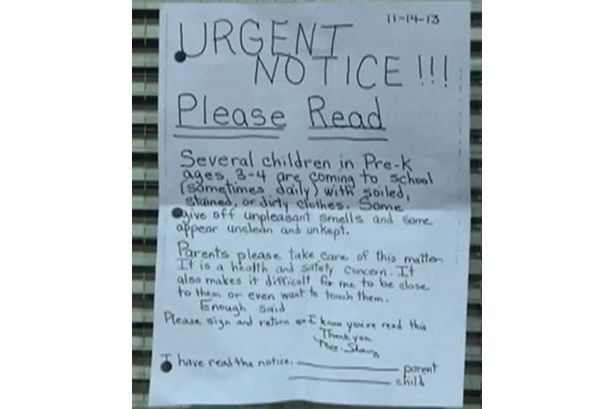 11-14-13
URGENT
NOTICE!!!
Please Read
Several children in Pre-K
ages 3-4 are coming to school
(sometimes daily) with soiled,
stained, or dirty clothes. Some
give off unpleasant smells and some
appear unclean and unkept.
Parents please take care of this matter.
It is a health and safety concern. It
also makes it difficult for me to be close
to them or even want to touch them.
Enough said
Please sign and return so I know you've read this
Thank you
I have read the notice.
parent
child